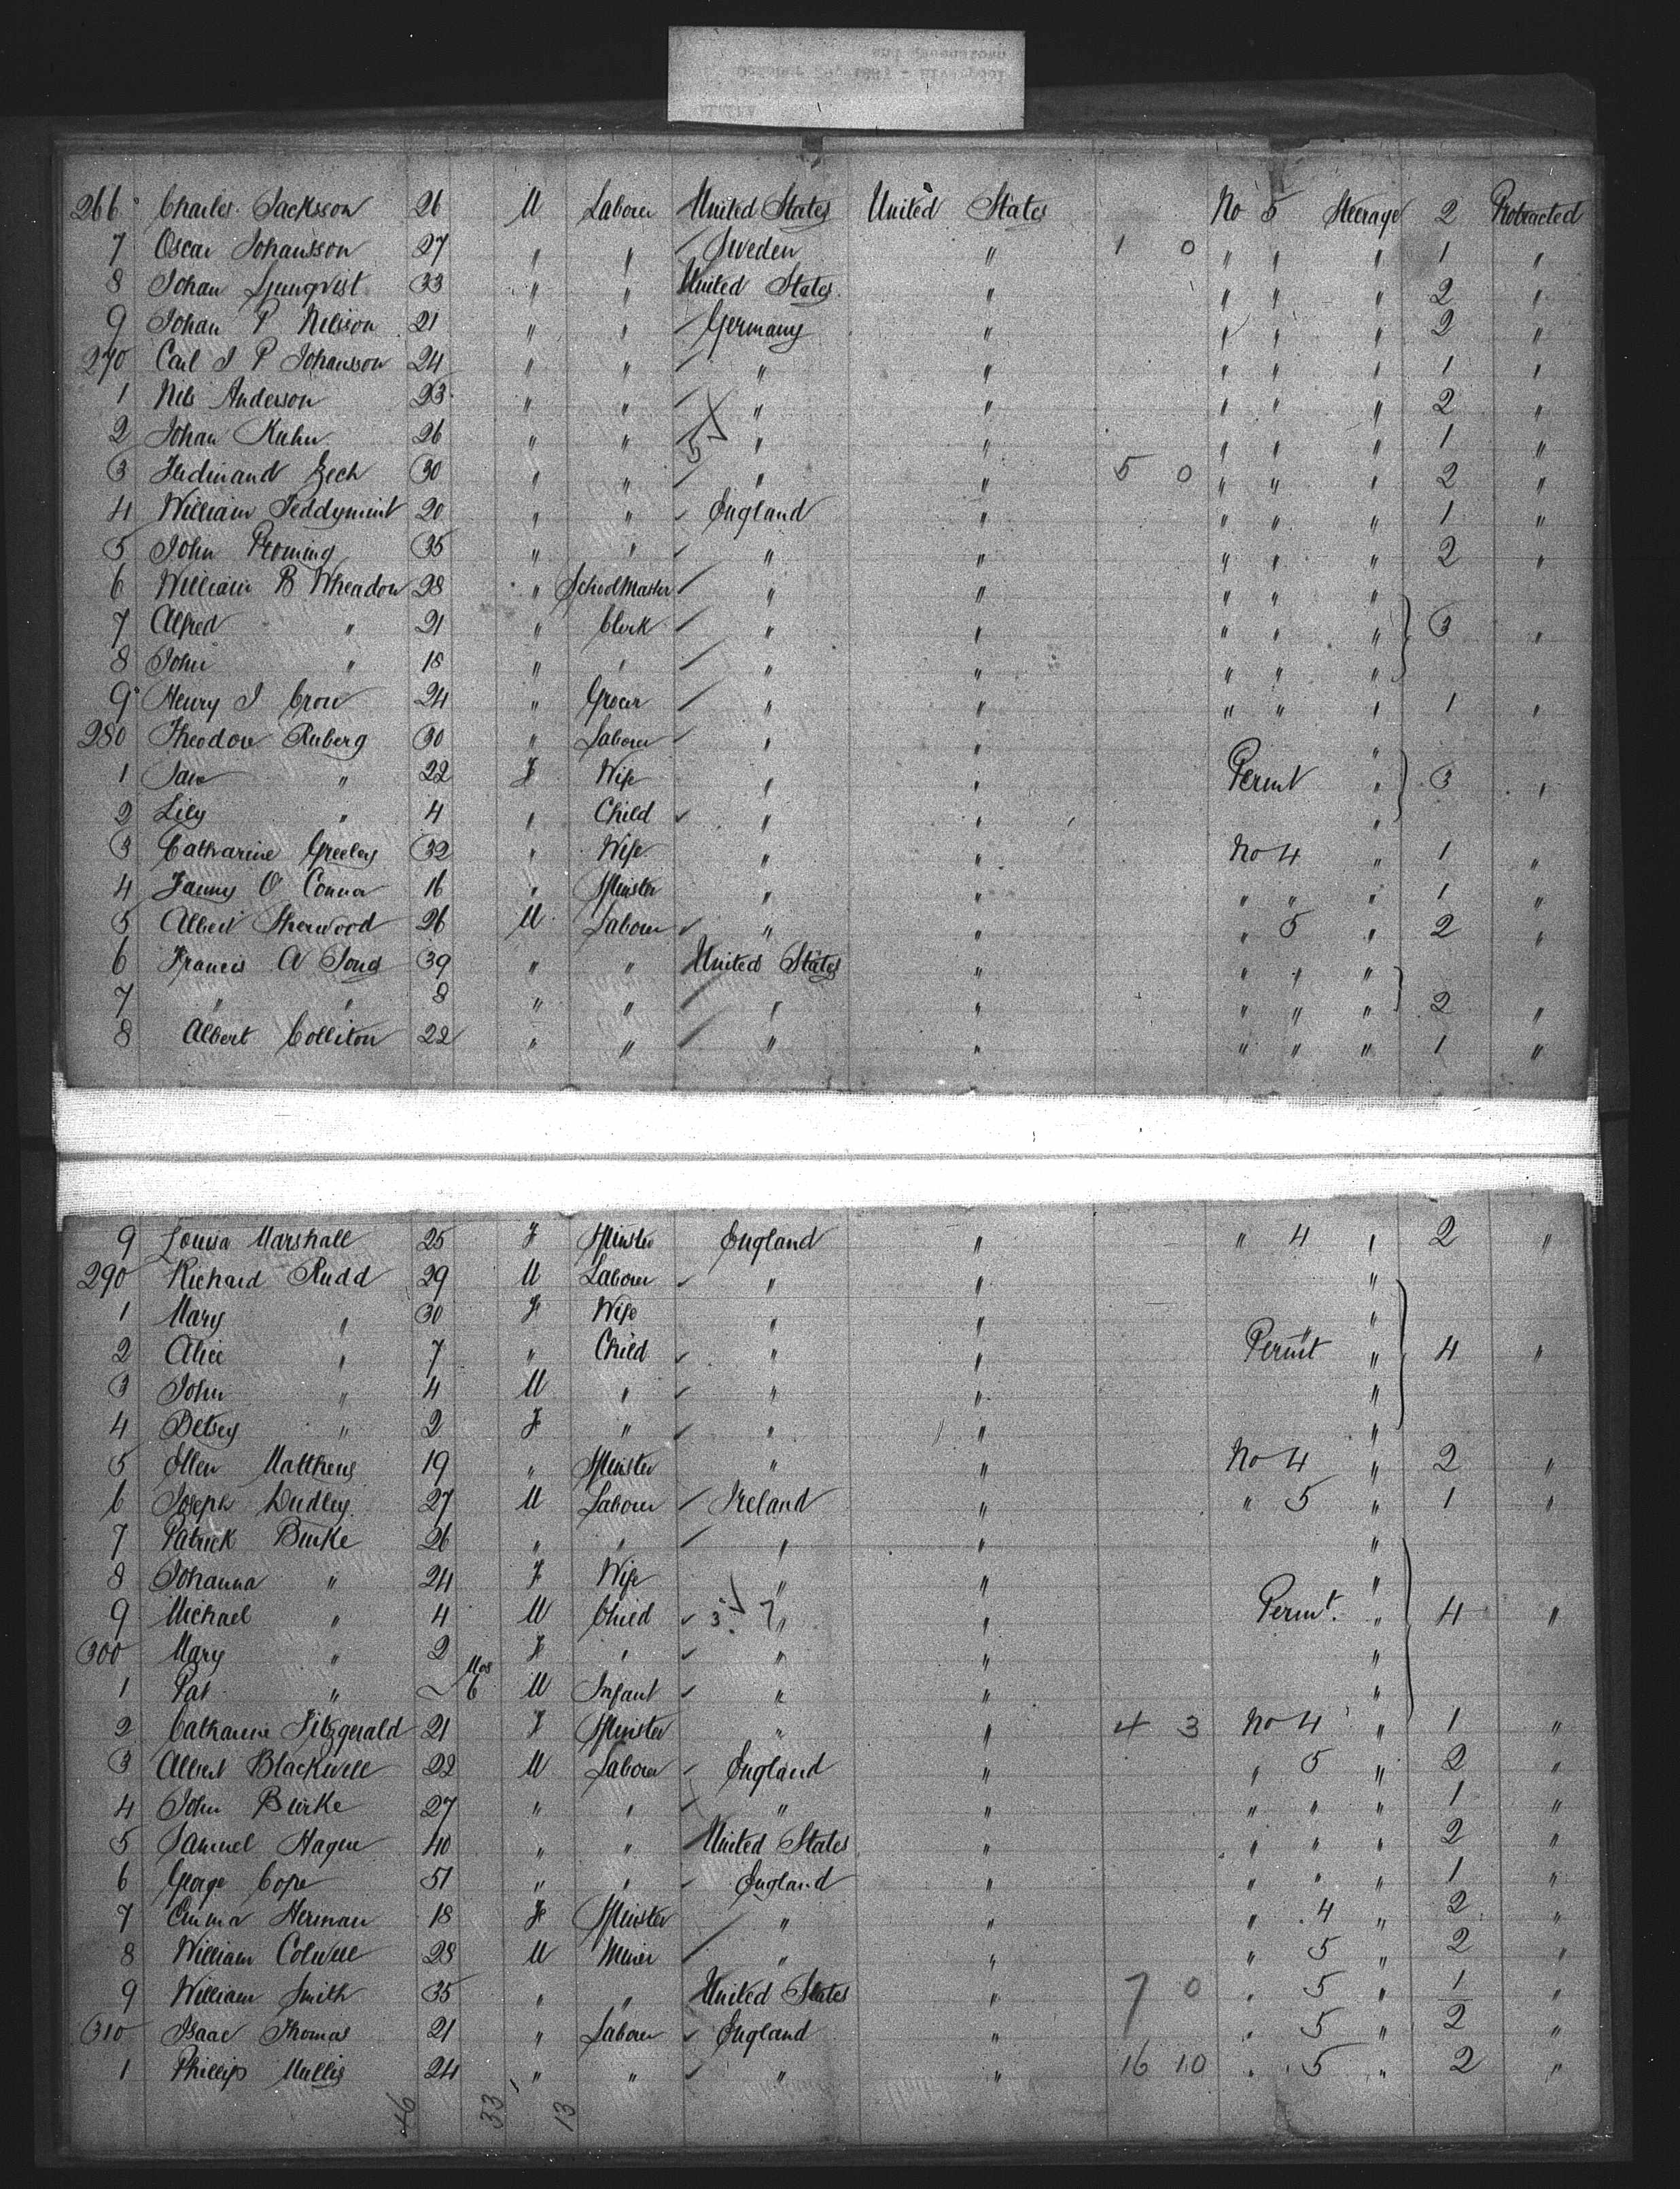 266 Charles Jacksson 26 M Laborer United States United States No 5 Steerage 2 Protracted
7 Oscar Johansson 27 " " Sweden " 1 0 " " " 1 "
8 Johan Ljungvist 33 " " United States " " " " 2 "
9 Johan P Nelsson 21 " " Germany " " " " 2 "
270 Carl J P Johansson 24 " " " " " " " 1 "
1 Nils Anderson 23 " " " " " " " 2 "
2 Johan Kuhn 26 " " 5 " " " " " 1 "
3 Ferdinand Zech 30 " " " " 5 0 " " " 2 "
4 William Teddymint 20 " " England " " " " 1 "
5 John Proming 35 " " " " " " " 2 "
6 William B Wheadon 28 " SchoolMaster " " " " "
7 Alfred " 21 " Clerk " " " " " 3 "
8 John " 18 " " " " " " "
9 Henry J Crow 24 " Grocer " " " " " 1 "
280 Theodore Ruberg 30 " Laborer " " "
1 Jane " 22 F Wife " " Permt " 3 "
2 Lily " 4 " Child " " "
3 Catharine Greeley 32 " Wife " " No 4 " 1 "
4 Fanny O Connor 16 " Spinster " " " " " 1 "
5 Albert Sherwood 26 M Laborer " " " 5 " 2 "
6 Francis A Jones 39 " " United States " " " "
7 " " 8 " " " " " " " 2 "
8 Albert Colliton 22 " " " " " " " 1 "
9 Louisa Marshall 25 F Spinster England " " 4 " 2 "
290 Richard Rudd 29 M Laborer " " "
1 Mary " 30 F Wife " " "
2 Alice " 7 " Child " " Permt " 4 "
3 John " 4 M " " " "
4 Betsey " 2 F " " " "
5 Ellen Matthews 19 " Spinster " " No 4 " 2 "
6 Joseph Dudley 27 M Laborer Ireland " " 5 " 1 "
7 Patrick Burke 26 " " " " "
8 Johanna " 24 F Wife " " "
9 Michael " 4 M Child 3 7 " " Permt. " 4 "
300 Mary " 2 F " " " "
1 Pat " Mos 6 M Infant " " "
2 Catharine Fitzgerald 21 F Spinster " " 4 3 No 4 " 1 "
3 Albert Blackwell 22 M Laborer England " " 5 " 2 "
4 John Burke 27 " " " " " " " 1 "
5 Samuel Hague 40 " " United States " " " " 2 "
6 George Cope 51 " " England " " " " 1 "
7 Emma Herman 18 F Spinster " " " 4 " 2 "
8 William Colwell 28 M Miner " " " 5 " 2 "
9 William Smith 35 " " United States " 7 0 " 5 " 1 "
310 Isaac Thomas 21 " Laborer England " " 5 " 2 "
1 Phillip Mullis 24 " " " " 16 10 " 5 " 2 "
46 33 13